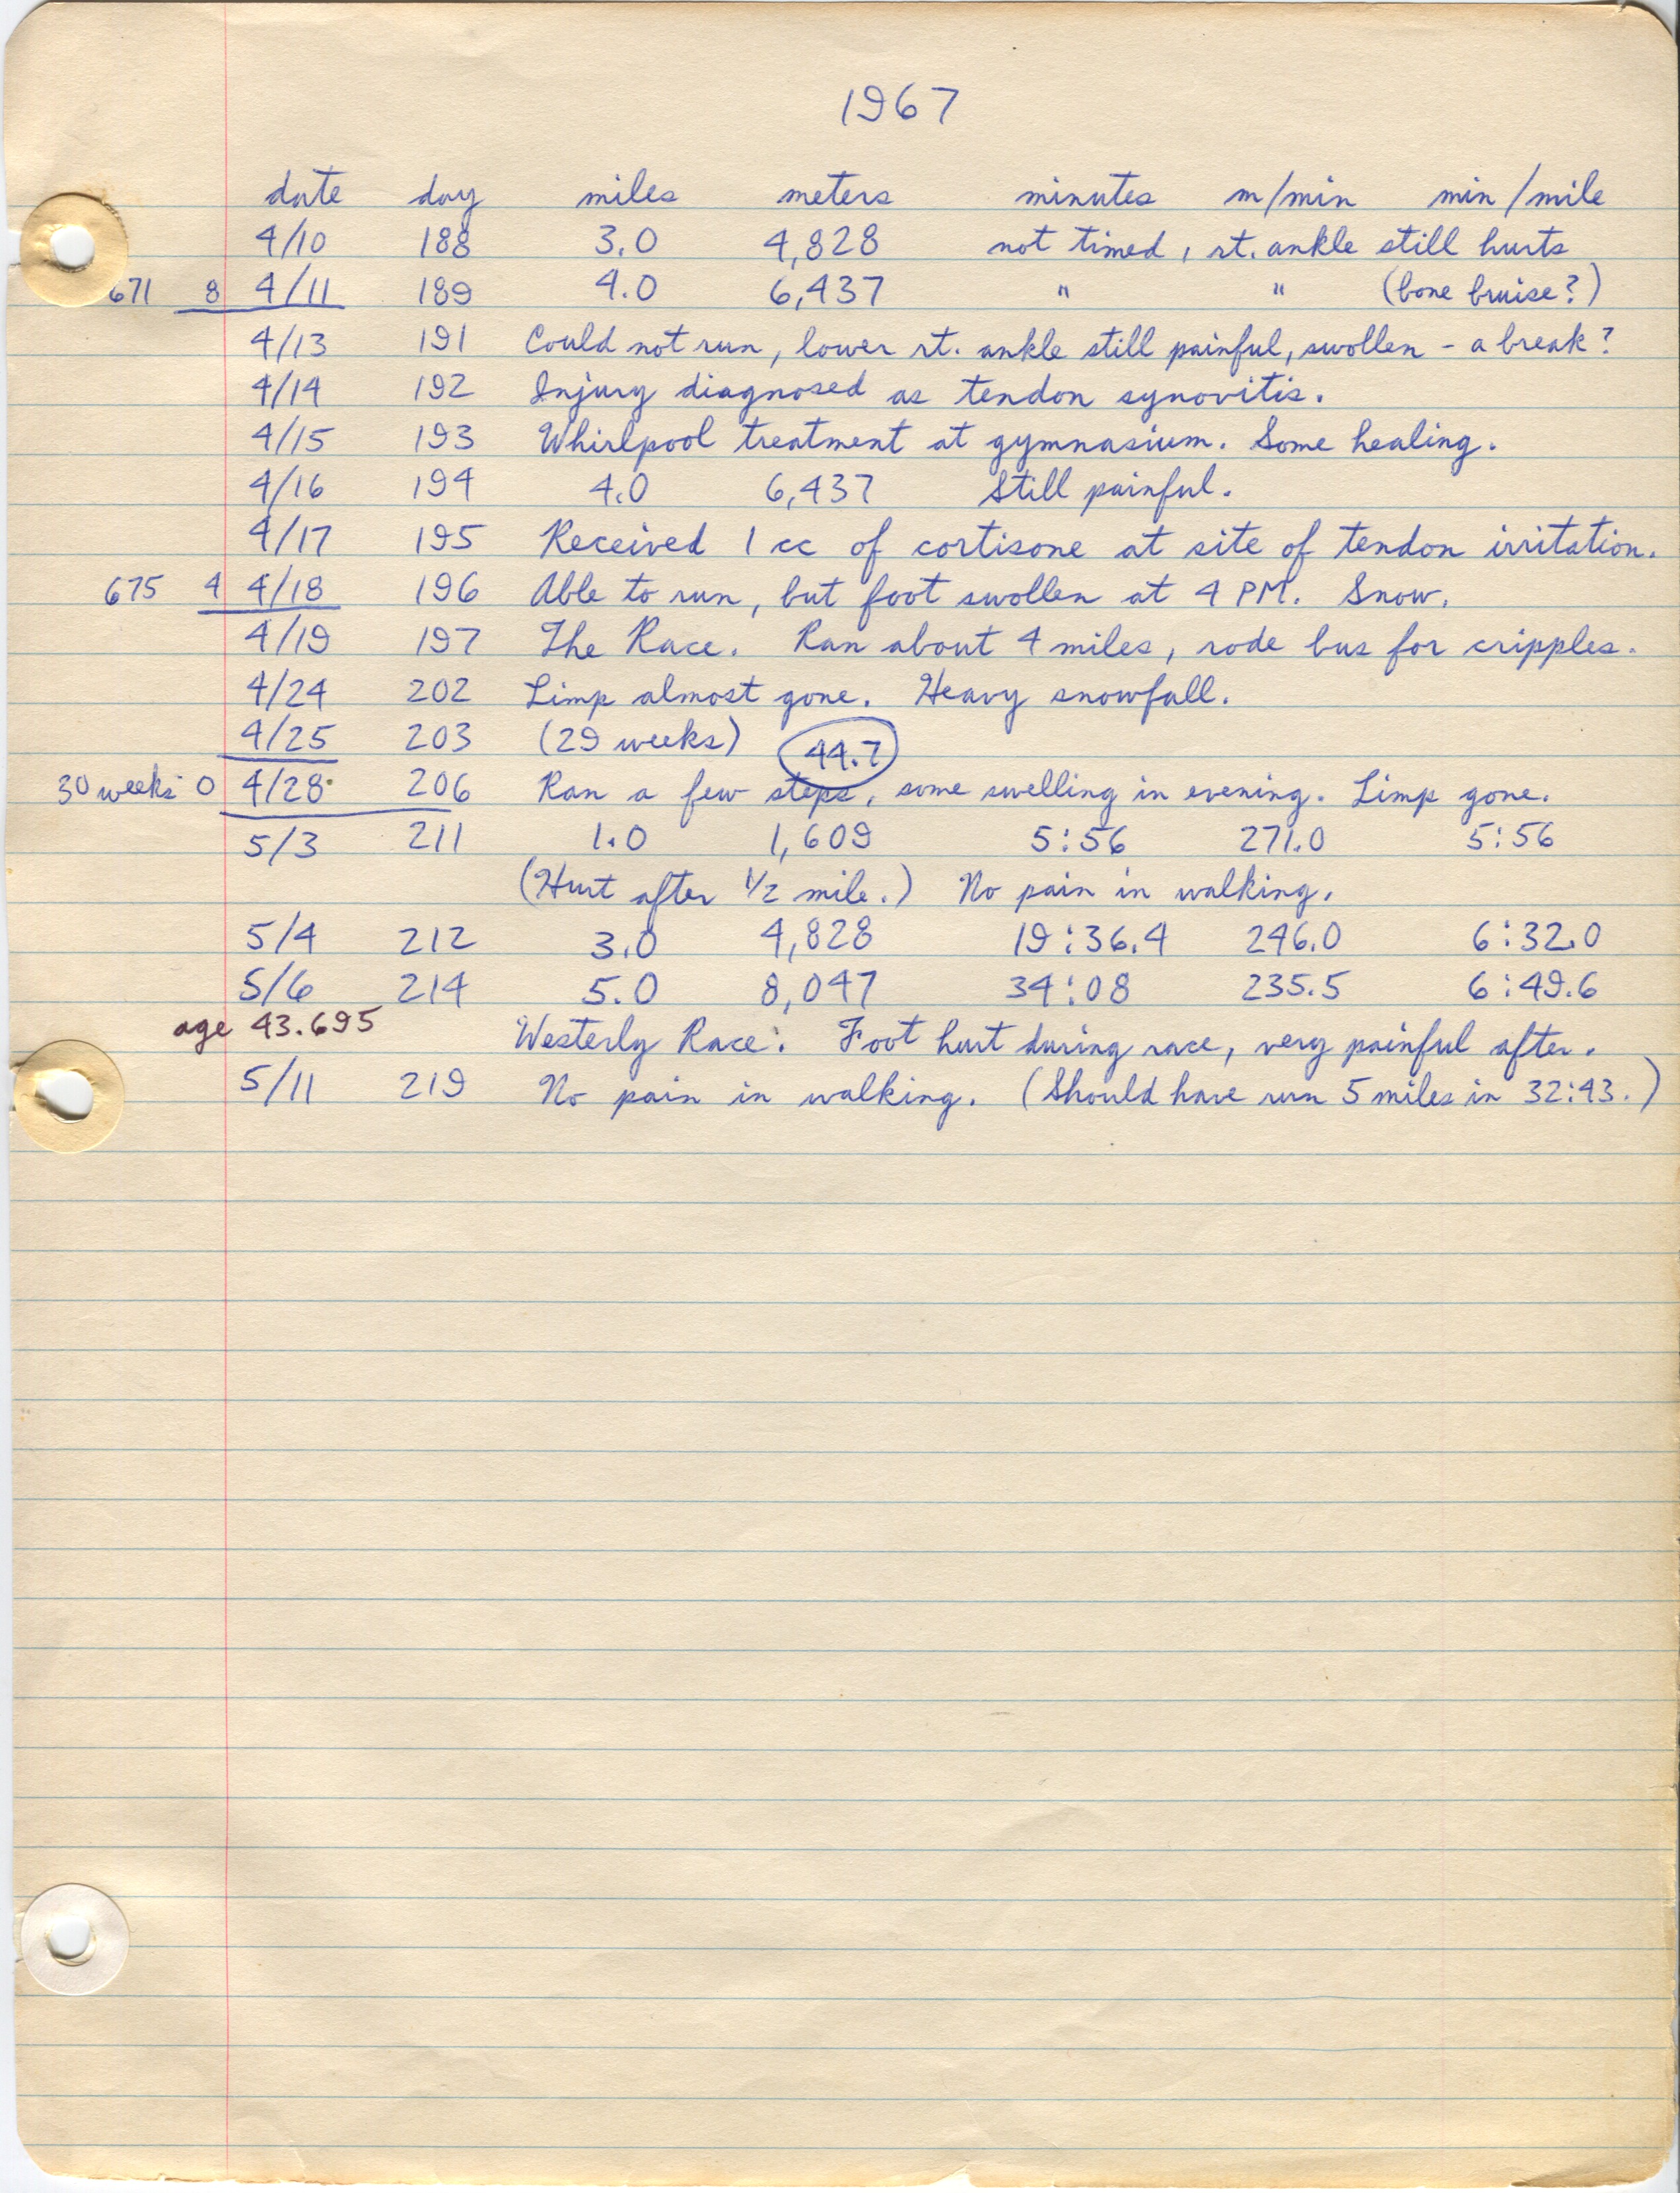 1967
date day miles meters minutes m/min min/mile
4/10 188 3.0 4,828 not timed, rt. ankle still hurts
671 8 4/11 189 4.0 6,437 " " (bone bruise?)
4/13 191 Could not run, lower rt. ankle still painful, swollen - a break?
4/14 192 Injury diagnosed as tendon synovitis.
4/15 193 Whirlpool treatment at gymnasium. Some healing.
4/16 194 4.0 6,437 Still painful.
4/17 195 Received 1 cc of cortisone at site of tendon irritation.
675 4 4/18 196 Able to run, but foot swollen at 4 PM. Snow.
4/19 197 The Race. Ran about 4 miles, rode bus for cripples.
4/24 202 Limp almost gone. Heavy snowfall.
4/25 203 (29 weeks) 44.7
30 weeks 0 4/28 206 Ran a few steps, some swelling in evening. Limp gone.
5/3 211 1.0 1,609 5:56 271.0 5:56
(Hurt after 1/2 mile.) No pain in walking.
5/4 212 3.0 4,828 19:36.4 246.0 6:32.0
5/6 214 5.0 8,047 34:08 235.5 6:49.6
age 43.695 Westerly Race: Foot hurt during race, very painful after.
5/11 219 No pain in walking. (Should have run 5 miles in 32:43.)